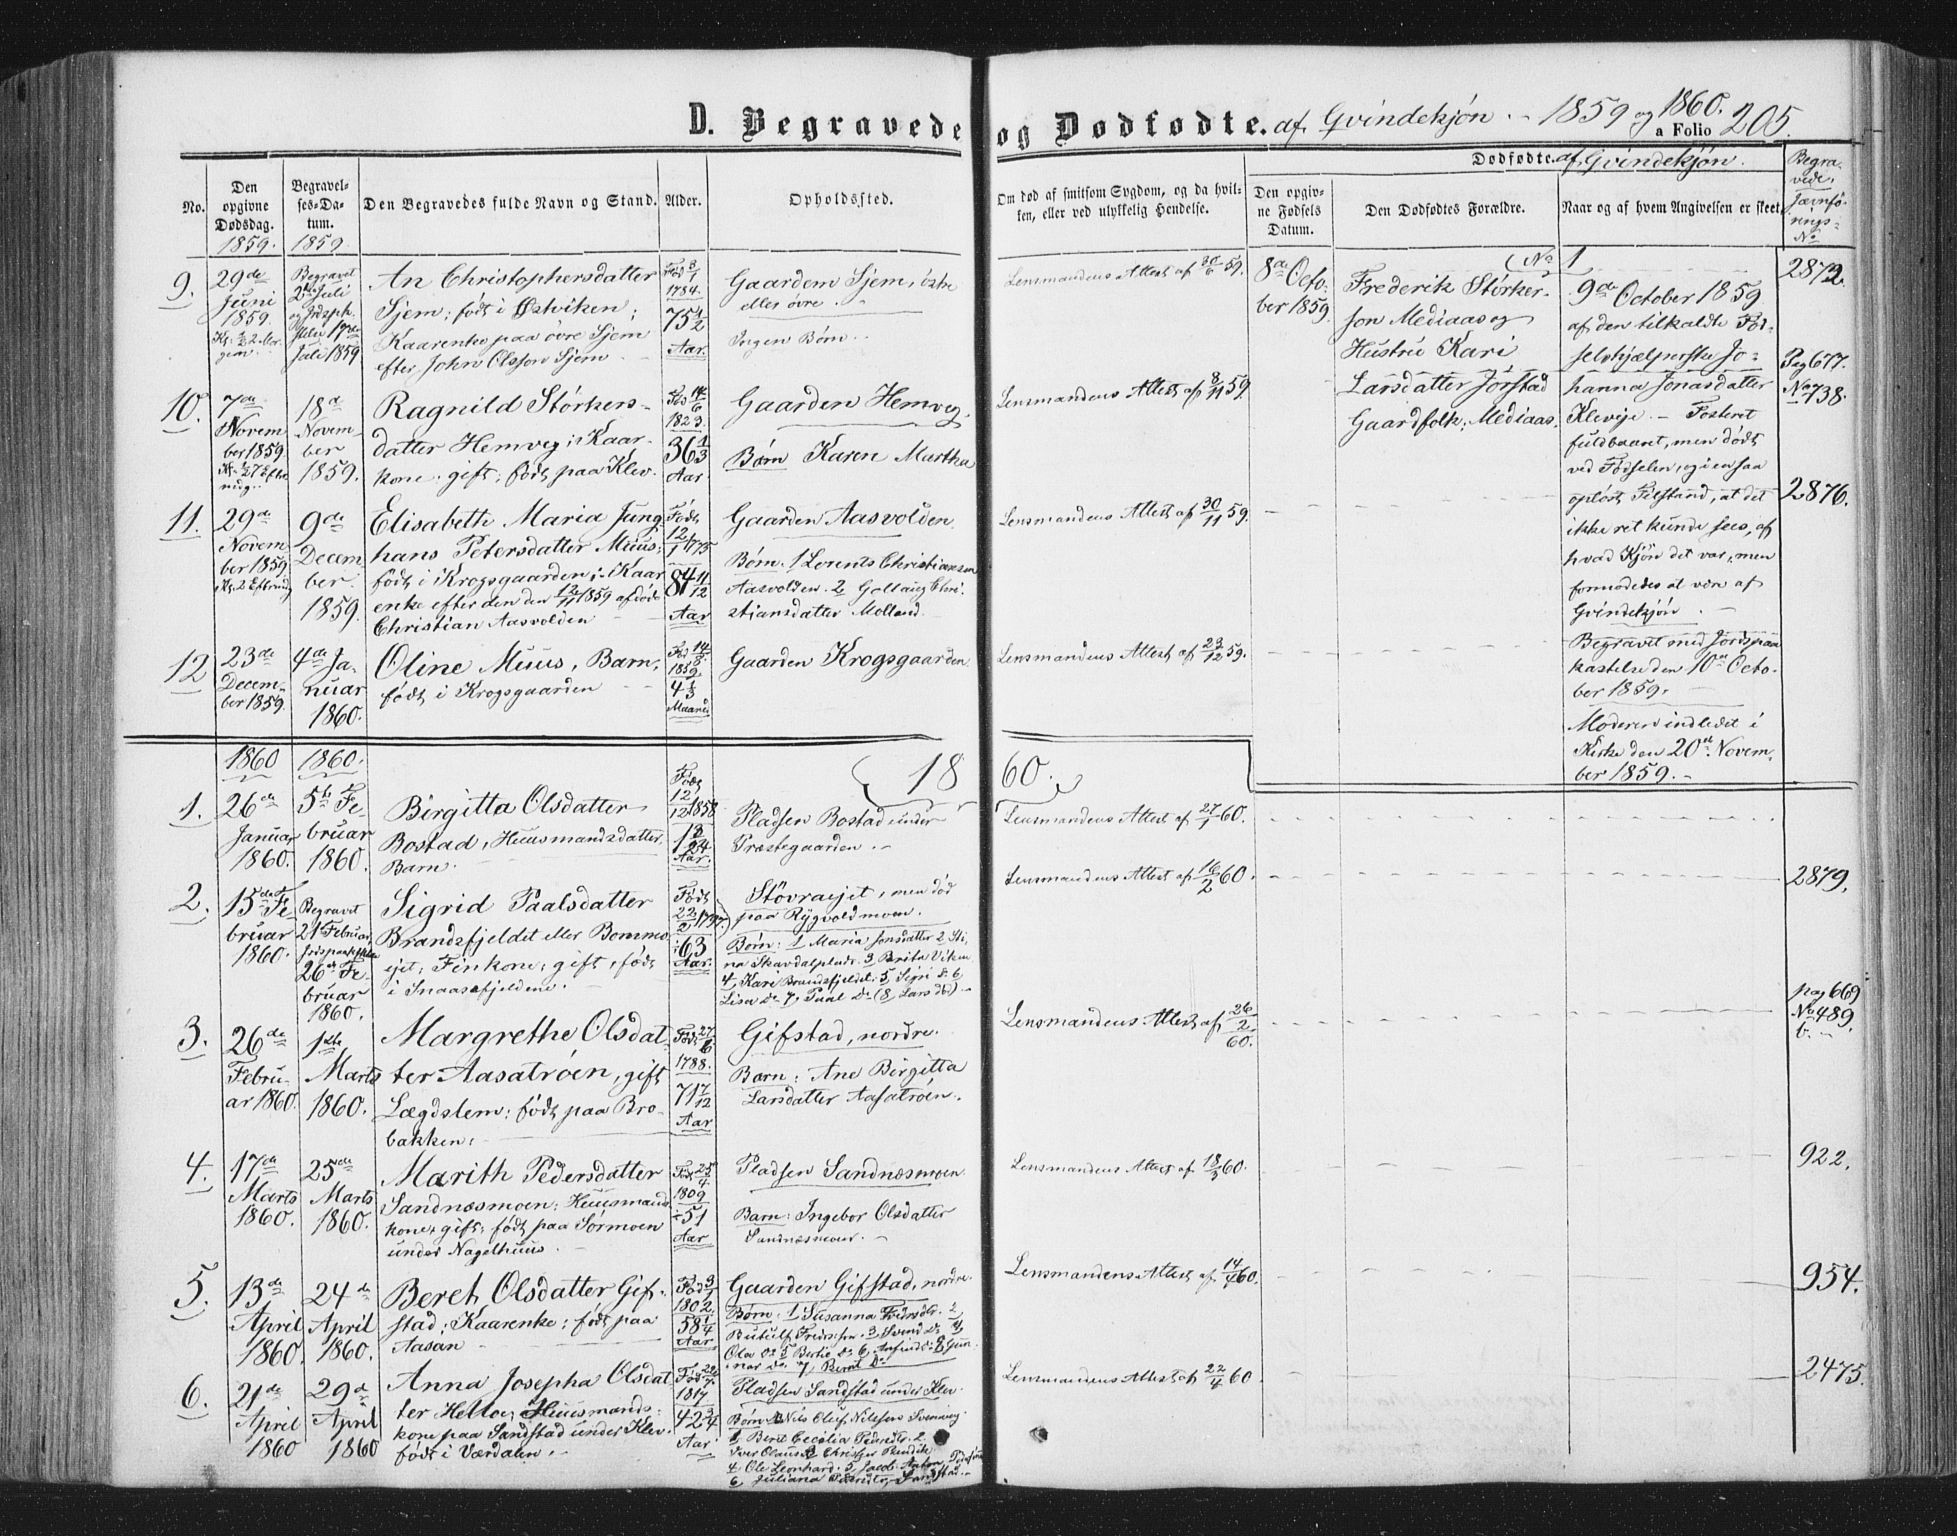 D. Begravede og Dødfødte. af Qvindekjøn. - 1859 og 1860. a Folio 205.
Dødfødte af Qvindekjøn.
No.
Den opgivne Dødsdag. 1859.
Begravelses-Datum. 1859
Den Begravedes fulde Navn og Stand.
Alder.
Opholdssted.
Om død af smitsom Sygdom, og da hvilken, eller ved ulykkelig Hendelse.
Den opgivne Fødsels Datum.
Den Dødfødtes Forældre.
Naar og af hvem Angivelsen er skeet.
Begravede, Jævnførings-No
9.
29de Juni 1859.
Begravet 2den Juli
Juli 1859
An Christophersdatter
Sjem; født i Østviken;
Kaarenke paa øvre Sjem
efter John Olsson Sjem
1784.
75 1/2
Aar.
Gaarden Sjem, østre
eller øvre.
Ingen Børn.
Lensmandens Attest af 30/6 59.
8de Octo-
ber 1859.
No 1
Frederik Størker-
son Mediaas og
Hustru Kari
Larsdatter Jørstad
Gaardfolk; Mediaas.
9de October 1859
af den tilkaldte Fød-
selshjælperske Jo-
hanna Jonasdatter
Klevje - Fosteret
fuldbaaret, men dødt
ved Fødselen, og i en saa
opløst Tilstand, at det
ikke ret kunde sees, af
hvad Kjøn det var, men
formodedes at være af
Qvindekjøn.
Begravet med Jordspaa-
kastelse den 10de Octo-
ber 1859.
Moderen indledet i
Kirke den 20de Novem-
ber 1859.
2872.
10.
7de Novem
ber 1859.
18de
Novem-
ber
1859.
Ragnild Størkers-
datter Hemveg; Kaar-
kone; gift; født paa Klev.
1823.
36 1/3
Aar
Gaarden Hemveg.
Børn Karen Martha
Lensmandens Attest af 8/11 59.
Pag 677.
No 738.
11.
29de
Novem
ber 1859.
9de
Decem
ber
1859.
Elisabeth Maria Jung-
hans Petersdatter Muus;
født i Krogsgaarden; Kaar
enke efter den den 12/11 1859 afdøde
Christian Aasvolden
Født
12/1 1775
84 11/12
Aar
Gaarden Aasvolden
Børn: 1 Lorents Christiansen
Aasvolden. 2 Gollaug Chri-
stiansdatter Molland.
Lensmandens Attest af 30/11 59.
2876.
12
23de
Decem-
ber 1859.
4de Ja-
nuar
1860.
Oline Muus, Barn,
født i Krogsgaarden
14/8
1859.
4 1/3
Maaned
Gaarden Krogsgaarden
Lensmandens Attest af 23/12 59.
1860
1860.
1860.
1.
26de
Januar
1860.
5te Fe
bruar
1860.
Birgitta Olsdatter
Bostad, Huusmandsdatter,
Barn.
Født
12/12 1858
Aar.
Pladsen Bostad under
Præstegaarden.
Lensmandens Attest af 27/1 60.
2.
15de Fe
bruar
1860.
Begravet
21 Februar,
26de Fe-
bruar
1860.
Sigrid Paalsdatter
Brandsfjeldet eller Bommo
ejet; Finkone; gift, født
i Snaasefjeldene.
Født
63
Aar.
Støvraejet, men død
paa Rygvoldmoen.
Børn: 1 Maria Jonsdatter 2 Sti
na Skavdalplads. 3 Brita Viken
4, Kari Brandsfjeldet. 5, Sigri do 6,
Lisa do 7, Paal do (8, Lars død)
Lensmandens Attest af 16/2 60.
2879.
3.
26de
Febru-
ar 1860.
1ste
Marts
1860.
Margrethe Olsdat-
ter Aasatrøen, gift
Lægdslem; født paa Bro-
bakken;
1788.
71 7/12
Aar
Gifstad, nordre.
Barn: Ane Birgitta
Larsdatter Aasatrøen.
Lensmandens Attest af 26/2 60.
pag 669
No 489.
b.
4.
17de
Marts
1860.
25de
Marts
1860.
Marith Pedersdatter
Sandnæsmoen; Huusmands
kone; gift; født paa Sørmoen
under Nagelhuus.
25/4
1809
51
Aar
Pladsen Sandnæsmoen
Barn: Ingebor Olsdatter
Sandnæsmoen.
Lensmandens Attest af 18/3 60.
922.
5.
13de
April
1860.
24de
April
1860.
Beret Olsdatter Gif-
stad; Kaarenke; født paa
Aasan
1802.
58 1/4
Aar
Gaarden Gifstad, nordre.
Børn: 1 Susanna Fredrsdtr. 2
Lensmandens Attest af 14/4 60.
954.
6.
21de
April
1860
29de
April
1860
Anna Josepha Olsdat
ter Helloe; Huusmands-
kone paa Sandstad under Klev.
født i Værdalen.
1817
42 3/4
Aar
Pladsen Sandstad under Klev.
Børn
1 Beret Cecilia Pedersdtr. 2
4 Ole Leonhard. 5, Jacob
6, Juliana
Lensmandens Attest af 22/4 60.
2475.